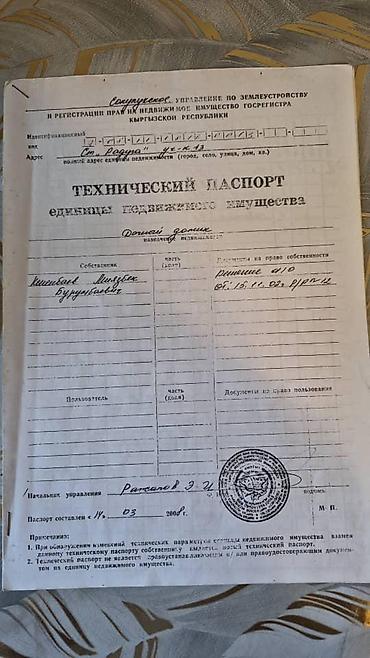 Сокулукское УПРАВЛЕНИЕ ПО ЗЕМЛЕУСТРОЙСТВУ
И РЕГИСТРАЦИИ ПРАВ НА НЕДВИЖИМОЕ ИМУЩЕСТВО ГОСРЕГИСТРА
КЫРГЫЗСКОЙ РЕСПУБЛИКИ
Идентификационный
код
Адрес Ст. "Радуга" уч-к 13
полный адрес единицы недвижимости (город, село, улица, дом, кв.)
ТЕХНИЧЕСКИЙ ПАСПОРТ
единицы недвижимого имущества
Дачный домик
назначение недвижимости
Собственник
часть
(доля)
Документы на право собственности
Решение
от 15.11.02г
Пользователь
часть
(доля)
Документы на право пользования
Начальник управления
подпись
Паспорт составлен « 14 » 03 2008 г.
М. П.
Примечания:
1. При обнаружении изменений технических параметров единицы недвижимого имущества взамен
данному техническому паспорту собственнику выдается новый технический паспорт.
2. Технический паспорт не является правоустанавливающим и/ или правоудостоверяющим докумен-
том на единицу недвижимого имущества.